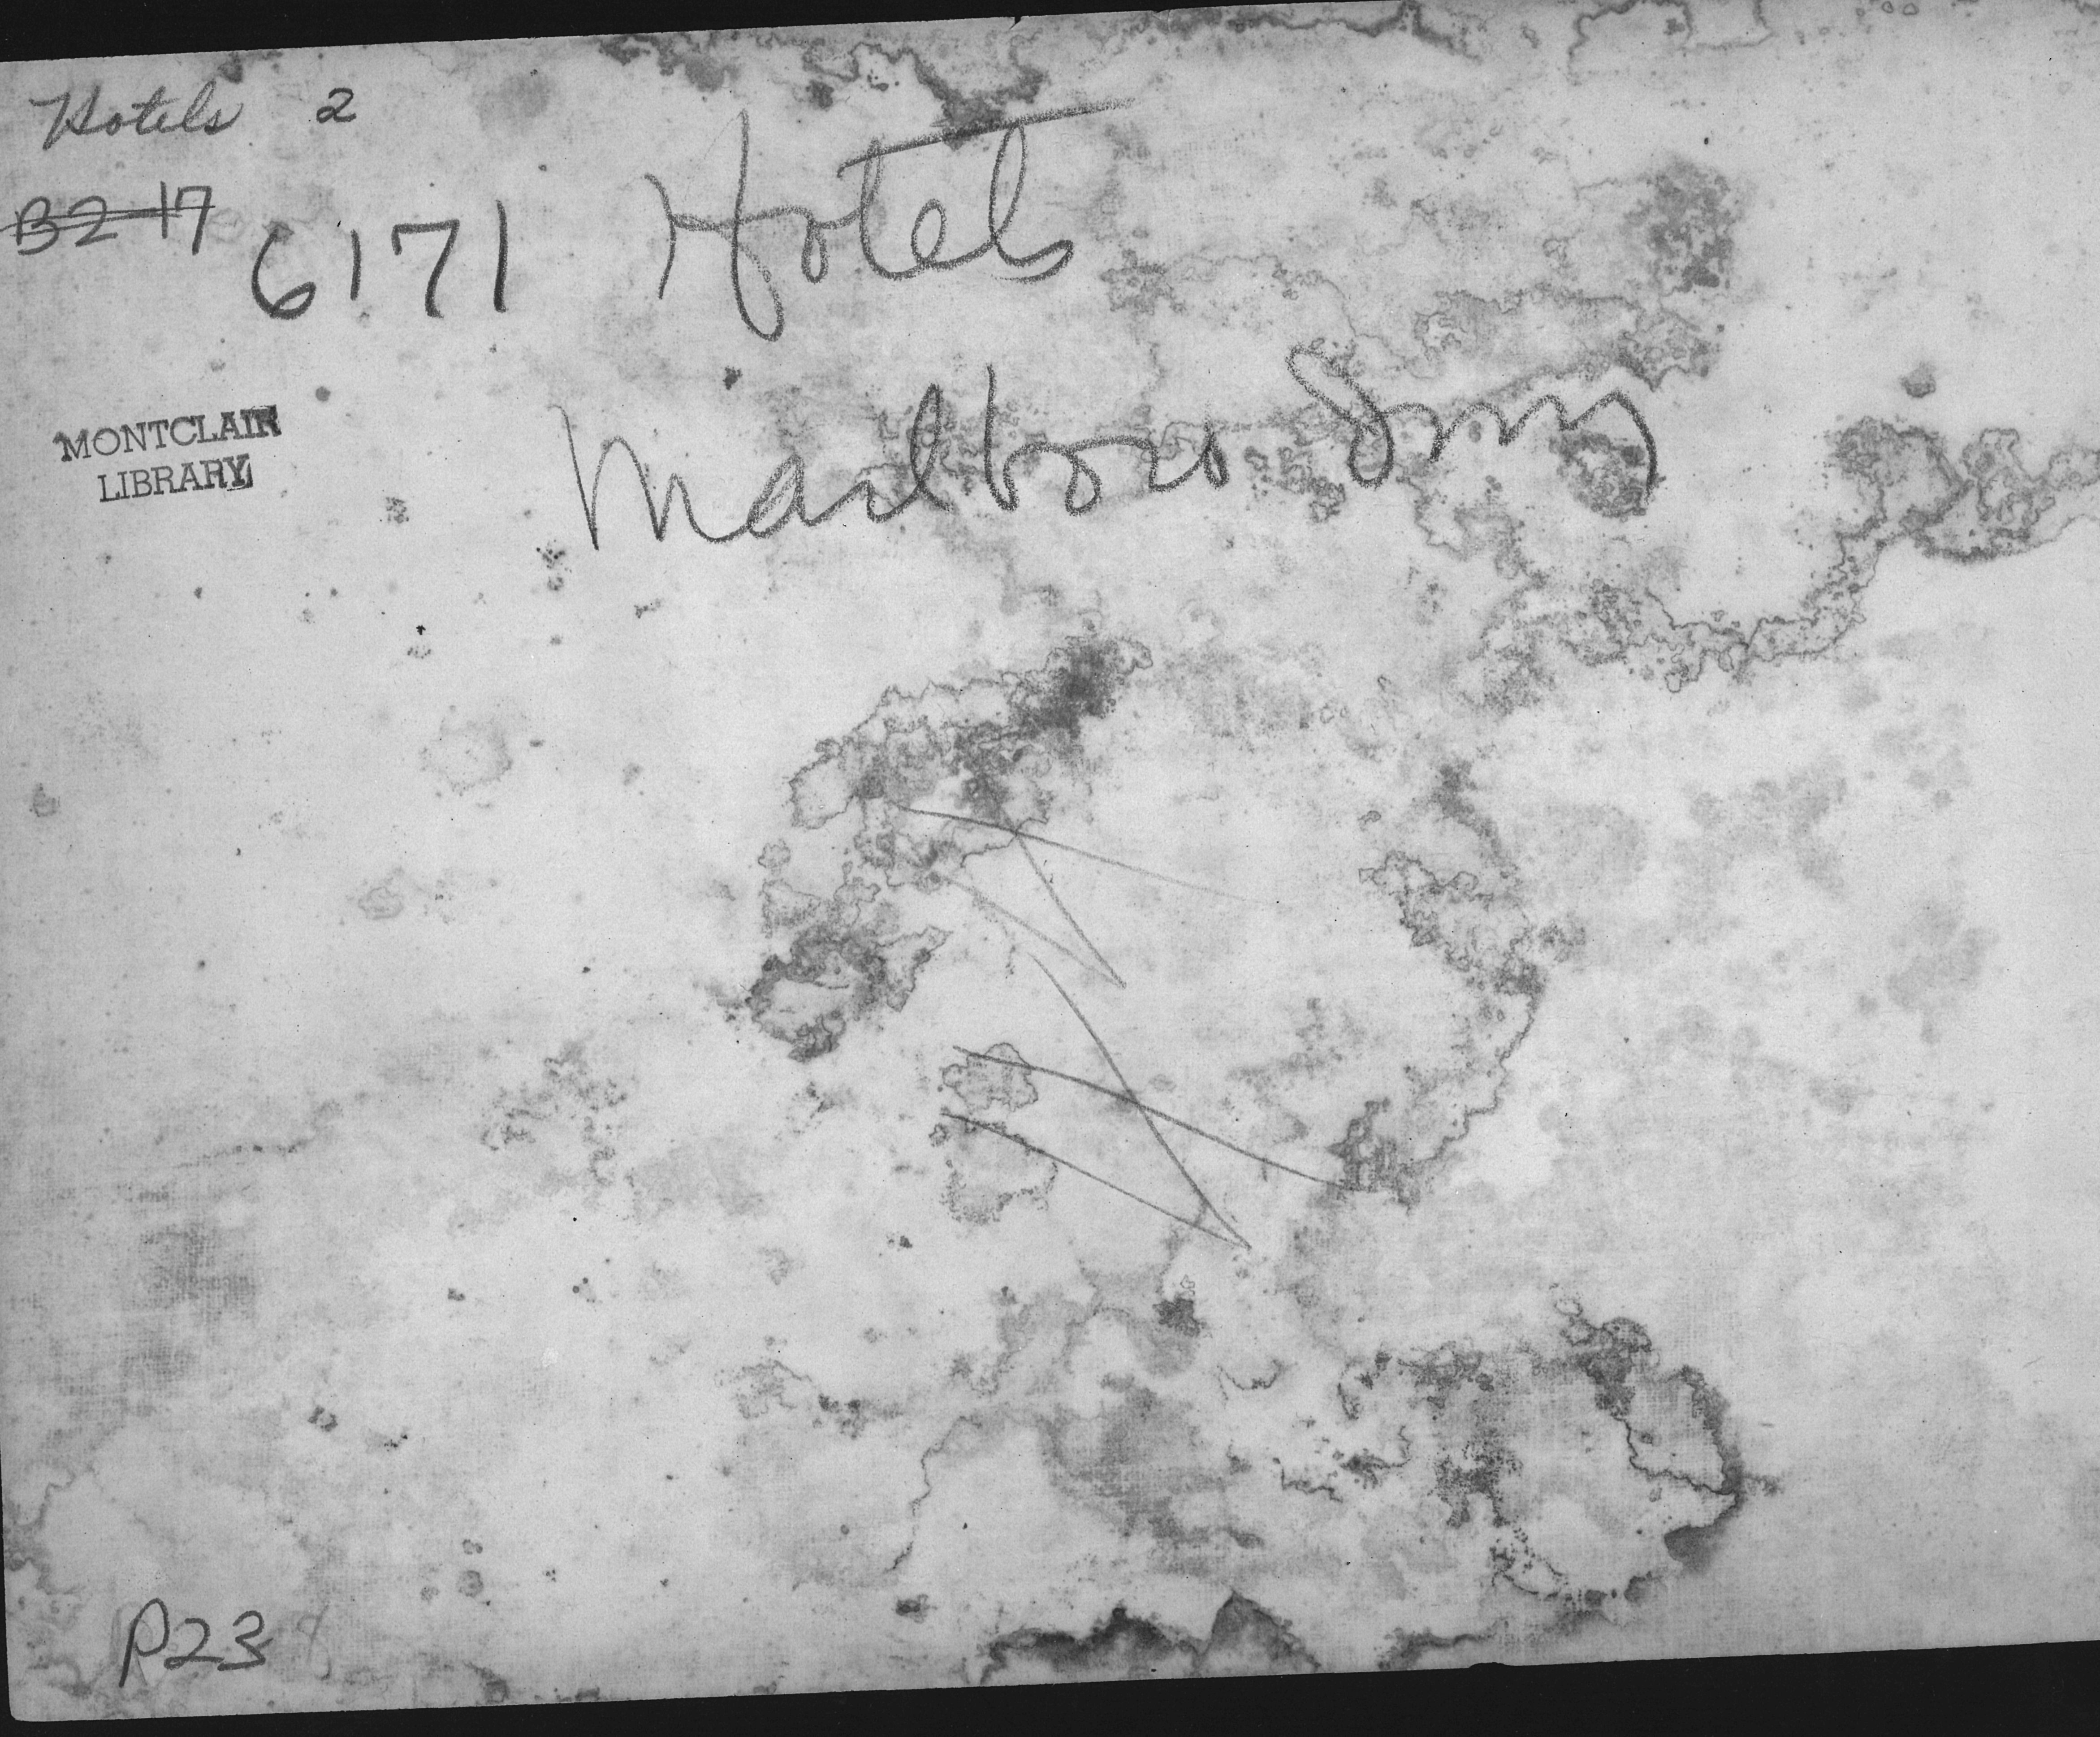 Hotels 2
B2-17
6171 Hotels
Marlboro Inn
MONTCLAIR
LIBRARY
P23